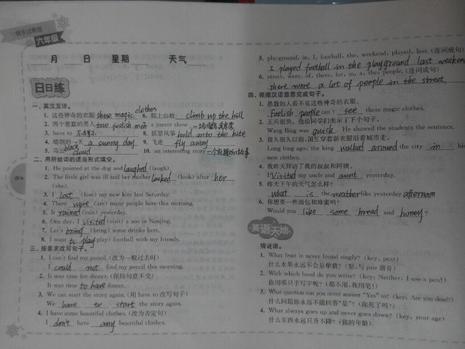 六年级
月 日 星期 天气
日日练
一、英汉互译。
1. 这些神奇的衣服 these magic clothes
2. 两个愚蠢的男人 two foolish men
3. have to 不得不
4. 晴朗的一天 a sunny day
6. 爬上山的 climb up the hill
8. 抓紧风筝 hold onto the kite
9. 飞走 fly away
10. an interesting story
二、用所给词的适当形式填空。
1. He pointed at the dog and laughed (laugh).
2. The little girl was ill and her mother looked (look) after her
3. I lost (lose) my new kite last Saturday.
4. There were (are) many people here this morning.
5. It rained (rain) yesterday.
6. One day, I visited (visit) a zoo in Nanjing.
7. Let's bring (bring) some drinks here.
8. I want to play (play) football with my friends.
三、按要求改写句子。
1. I can't find my pencil. (改为一般过去时)
I could not find my pencil this morning.
2. It was time for dinner. (保持句意不变)
It was time to have dinner.
3. We can start the story again. (用 have to 改写句子)
We have to start the story again.
4. I have some beautiful clothes. (改为否定句)
I don't have any beautiful clothes.
5. playground, in, I, football, the, weekend, played, last (连词成句)
I played football in the playground last weekend
6. street, were, of, there, lot, in, a, the, people (连词成句)
there were a lot of people in the street.
四、根据汉语意思完成句子。
1. 愚蠢的人看不见这些神奇的衣服。
Foolish people can't see these magic clothes.
Wang Bing was quick. He showed the students the sentence.
Long long ago, the king walked around the city in his
new clothes.
4. 我昨天拜访了我的叔叔和阿姨。
I visited my uncle and aunt yesterday.
5. 昨天下午的天气怎么样?
What is weather like yesterday afternoon
6. 你想要一些面包和蜂蜜吗?
Would you like some bread and honey?
英语天地
猜谜语。
1. What boat is never found singly? (key: pear)
2. With which hand do you write? (key: Neither. I use a pen!)
你用哪只手写字呢? (都不用,我用笔!)
3. What question can you never answer "Yes" to? (key: Are you dead?)
什么问题你永远不能回答"是"? (你死了吗?)
4. What always goes up and never goes down? (key: your age)
什么东西永远只升不降? (你的年龄)